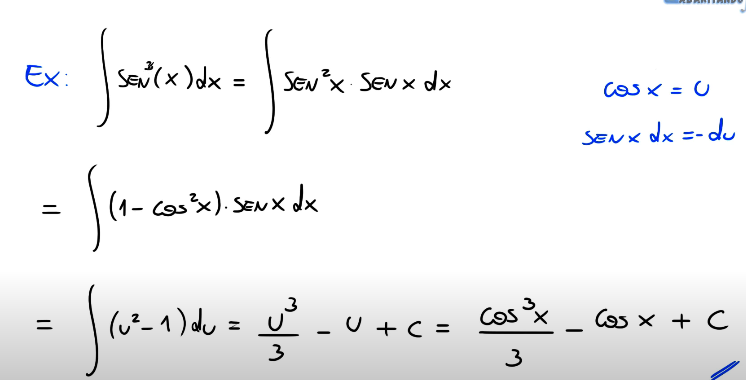 Ex: ∫ SEN³(x) dx = ∫ SEN²x · SENx dx
cos x = u
SENx dx = -du
= ∫ (1 - cos²x) · SENx dx
= ∫ (u² - 1) du = u³/3 - u + c = cos³x/3 - cos x + C